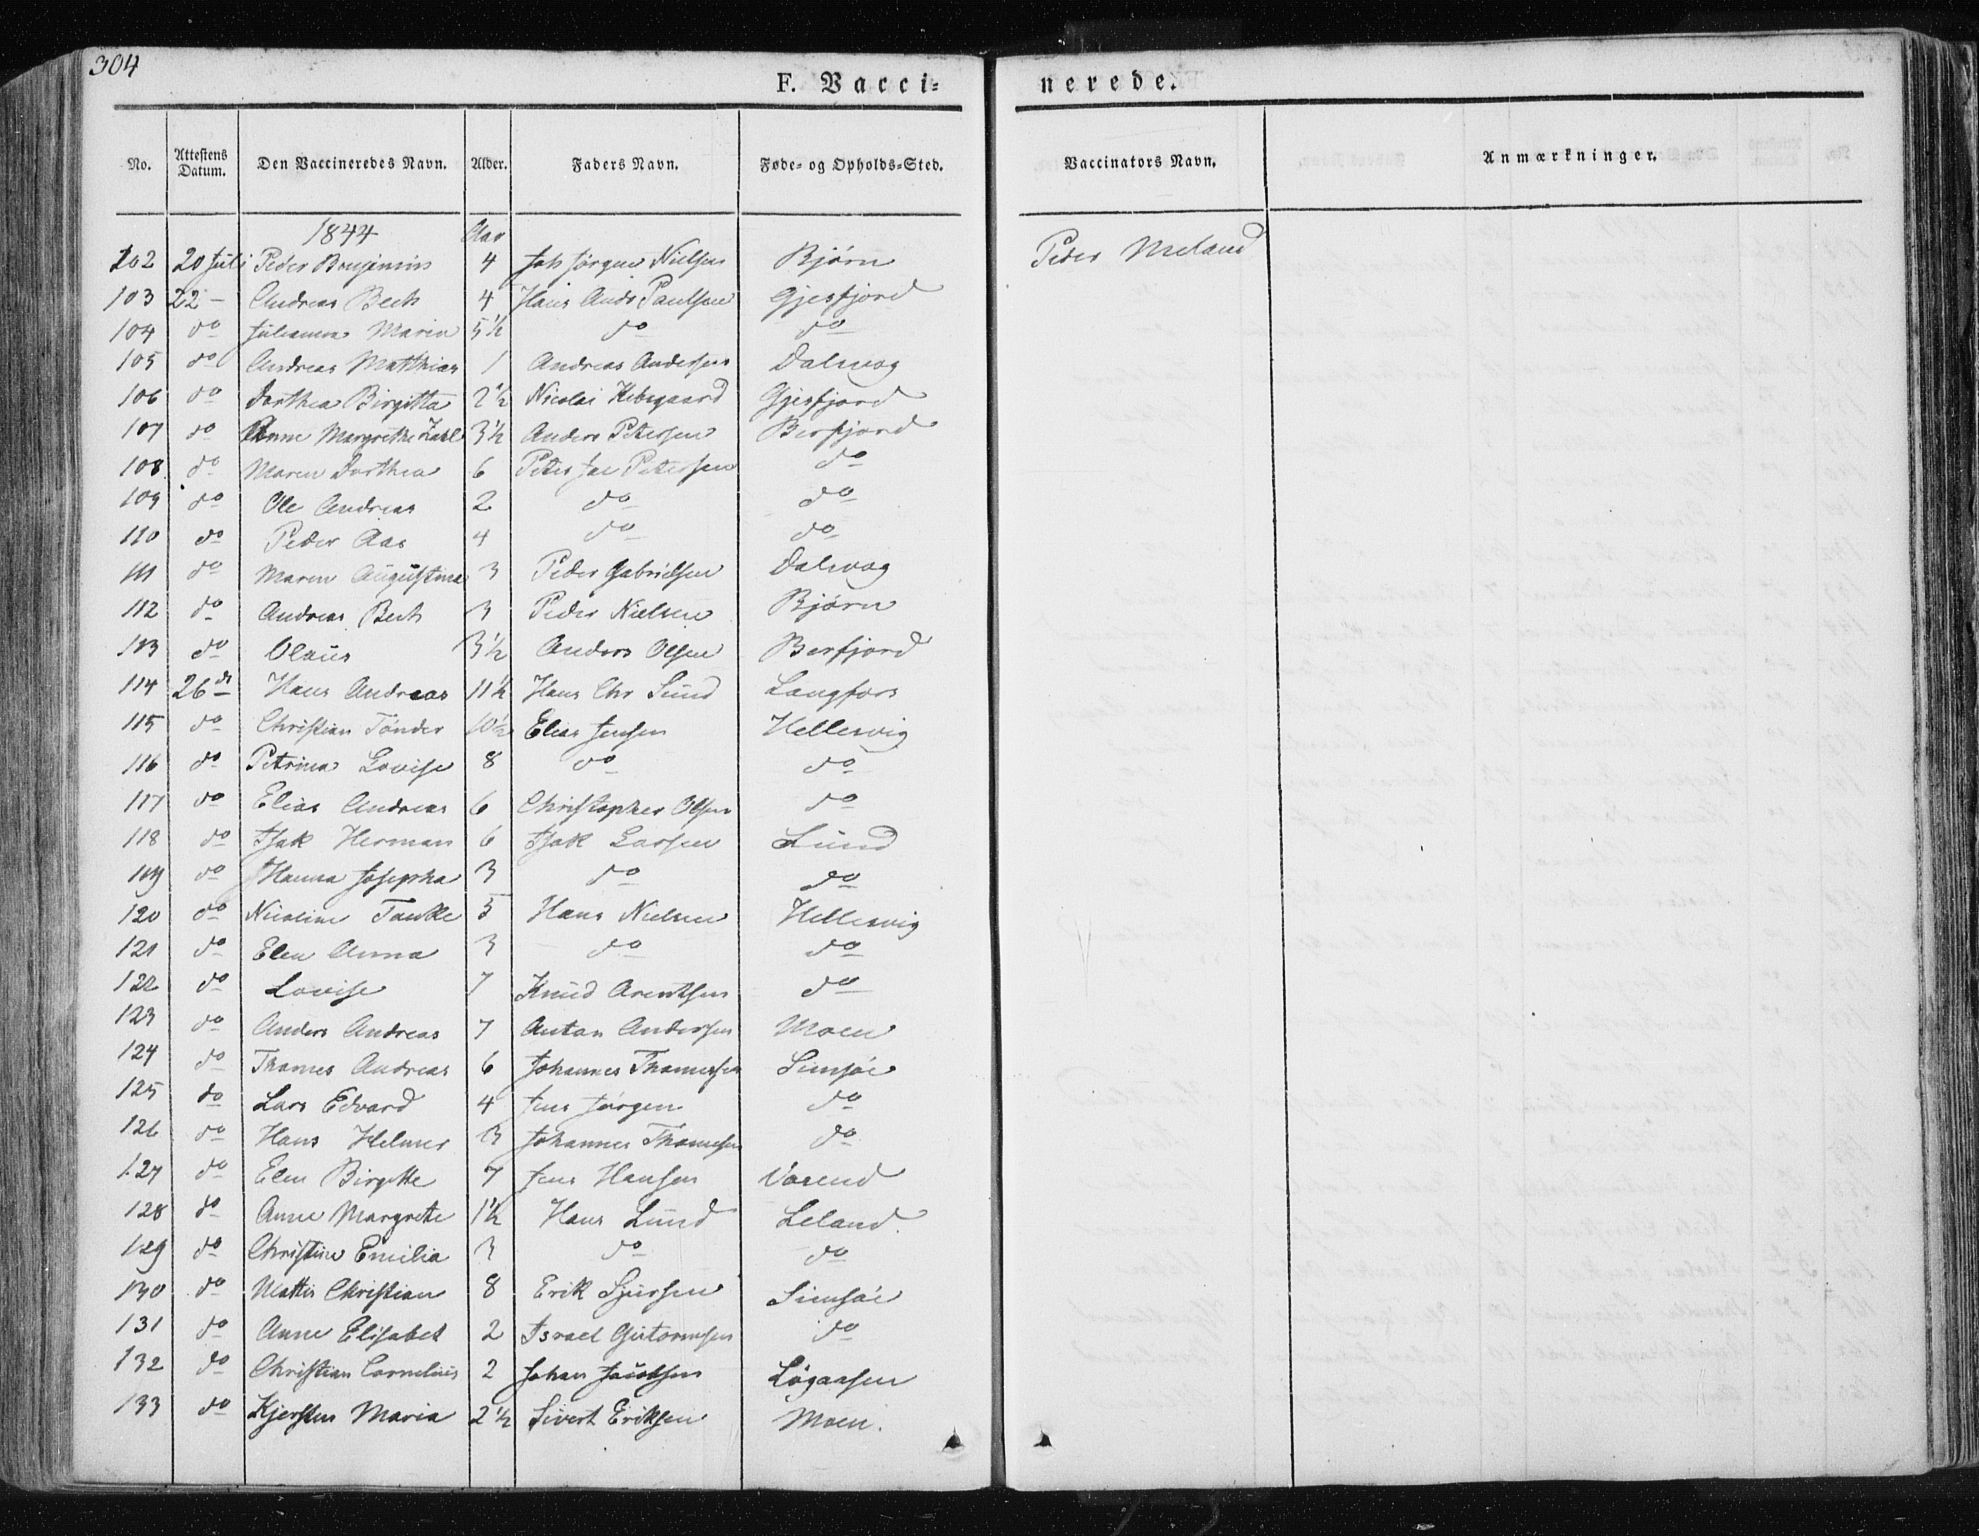 304
F. Vacci- nerede.
No. Attestens Datum. Den Vaccineredes Navn. Alder. Faders Navn. Føde- og Opholds-Sted. Vaccinators Navn. Anmærkninger.
1844 Aar
102 20 Juli Peder 4 Joh Jørgen Nielsen Bjørn Peder Meland
103 22 – Andreas Bech 4 Hans Andr Paulsen Gjesfjord
104 do Julianna Maria 5½ do do
105 do Andreas Matthias 1 Andreas Andersen Dalsvog
106 do Dorthea Birgitta 2½ Nicolai Gjesfjord
107 do Anne Margrethe Zahl 3½ Anders Petersen Berfjord
108 do Maren Dorthea 6 Peter Jac Petersen do
109 do Ole Andreas 2 do do
110 do Peder Aas 4 do do
111 do Maren Augustina 3 Peder Gabrielsen Dalsvog
112 do Andreas Bech 3 Peder Nielsen Bjørn
113 do Olaus 3½ Anders Olsen Berfjord
114 26 do Hans Andreas 11½ Hans Chr Lund Langfors
115 do Christian Tönder 10½ Elias Jensen Hellesvig
116 do Petrina Lovise 8 do do
117 do Elias Andreas 6 Christopher Olsen do
118 do Isak Herman 6 Isak Larsen Lund
119 do Hanna Josepha 3 do do
120 do Nicoline Tanke 5 Hans Nielsen Hellesvig
121 do Elen Anna 3 do do
122 do Lovise 7 Knud Arentsen do
123 do Anders Andreas 7 Anton Andersen Moen
124 do Thomes Andreas 6 Johannes Thomessen Simsöe
125 do Lars Edvard 4 Jens Jörgen do
126 do Hans Helmer 3 Johannes Thomesen do
127 do Elen Birgitte 7 Jens Hansen Varend
128 do Anne Margrete 1½ Hans Lund Leland.
129 do Christine Emilia 3 do do
130 do Mattis Christian 8 Erik Sjursen Simsöe
131 do Anne Elisabet 2 Israel Gutormsen do
132 do Christian Cornelius 2 Johan Jacobsen Løgaasen
133 do Kjersten Maria 2½ Sivert Eriksen Moen.